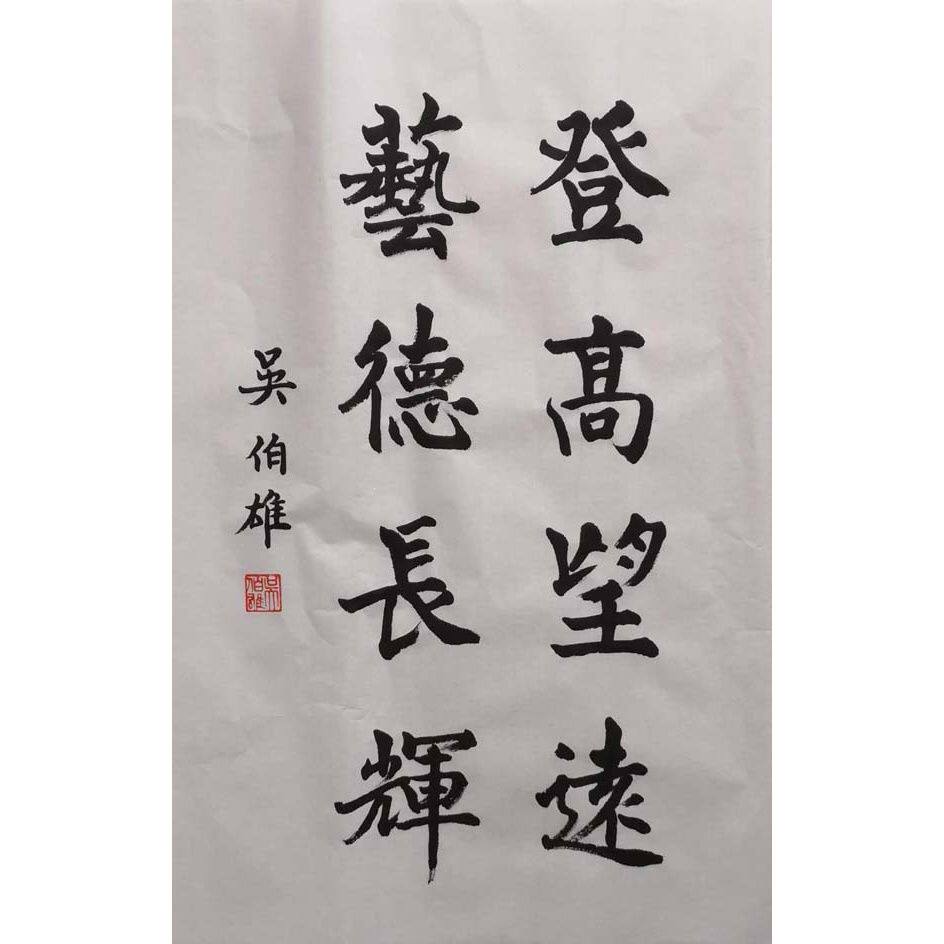 登高望遠
藝德長輝
吳伯雄
吳伯雄